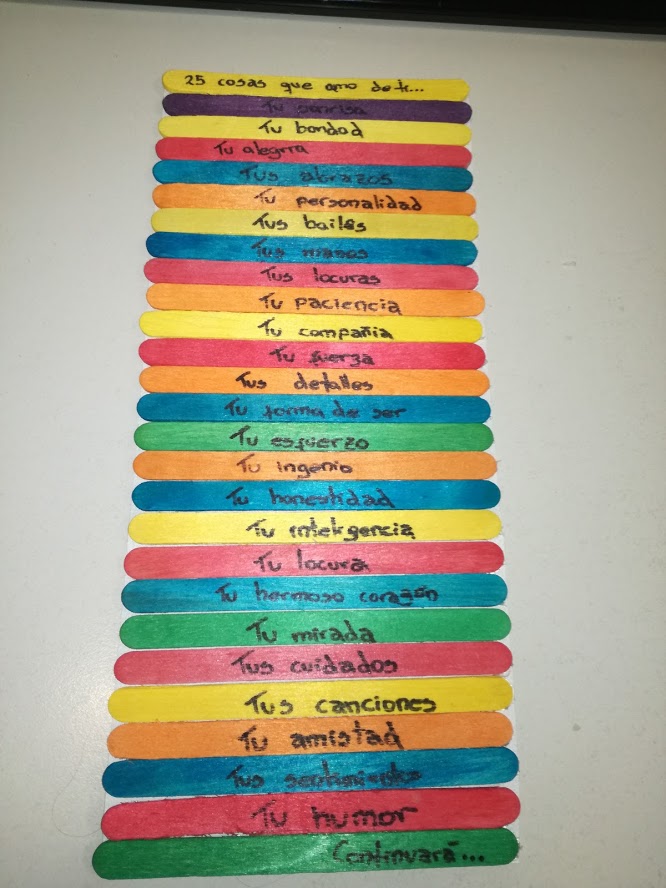 25 cosas que amo de ti...
Tu sonrisa
Tu bondad
Tu alegria
Tus abrazos
Tu personalidad
Tus bailes
Tus manos
Tus locuras
Tu paciencia
Tu compañia
Tu fuerza
Tus detalles
Tu forma de ser
Tu esfuerzo
Tu ingenio
Tu honestidad
Tu inteligencia
Tu locura
Tu hermoso corazón
Tu mirada
Tus cuidados
Tus canciones
Tu amistad
Tus
Tu humor
Continuará...